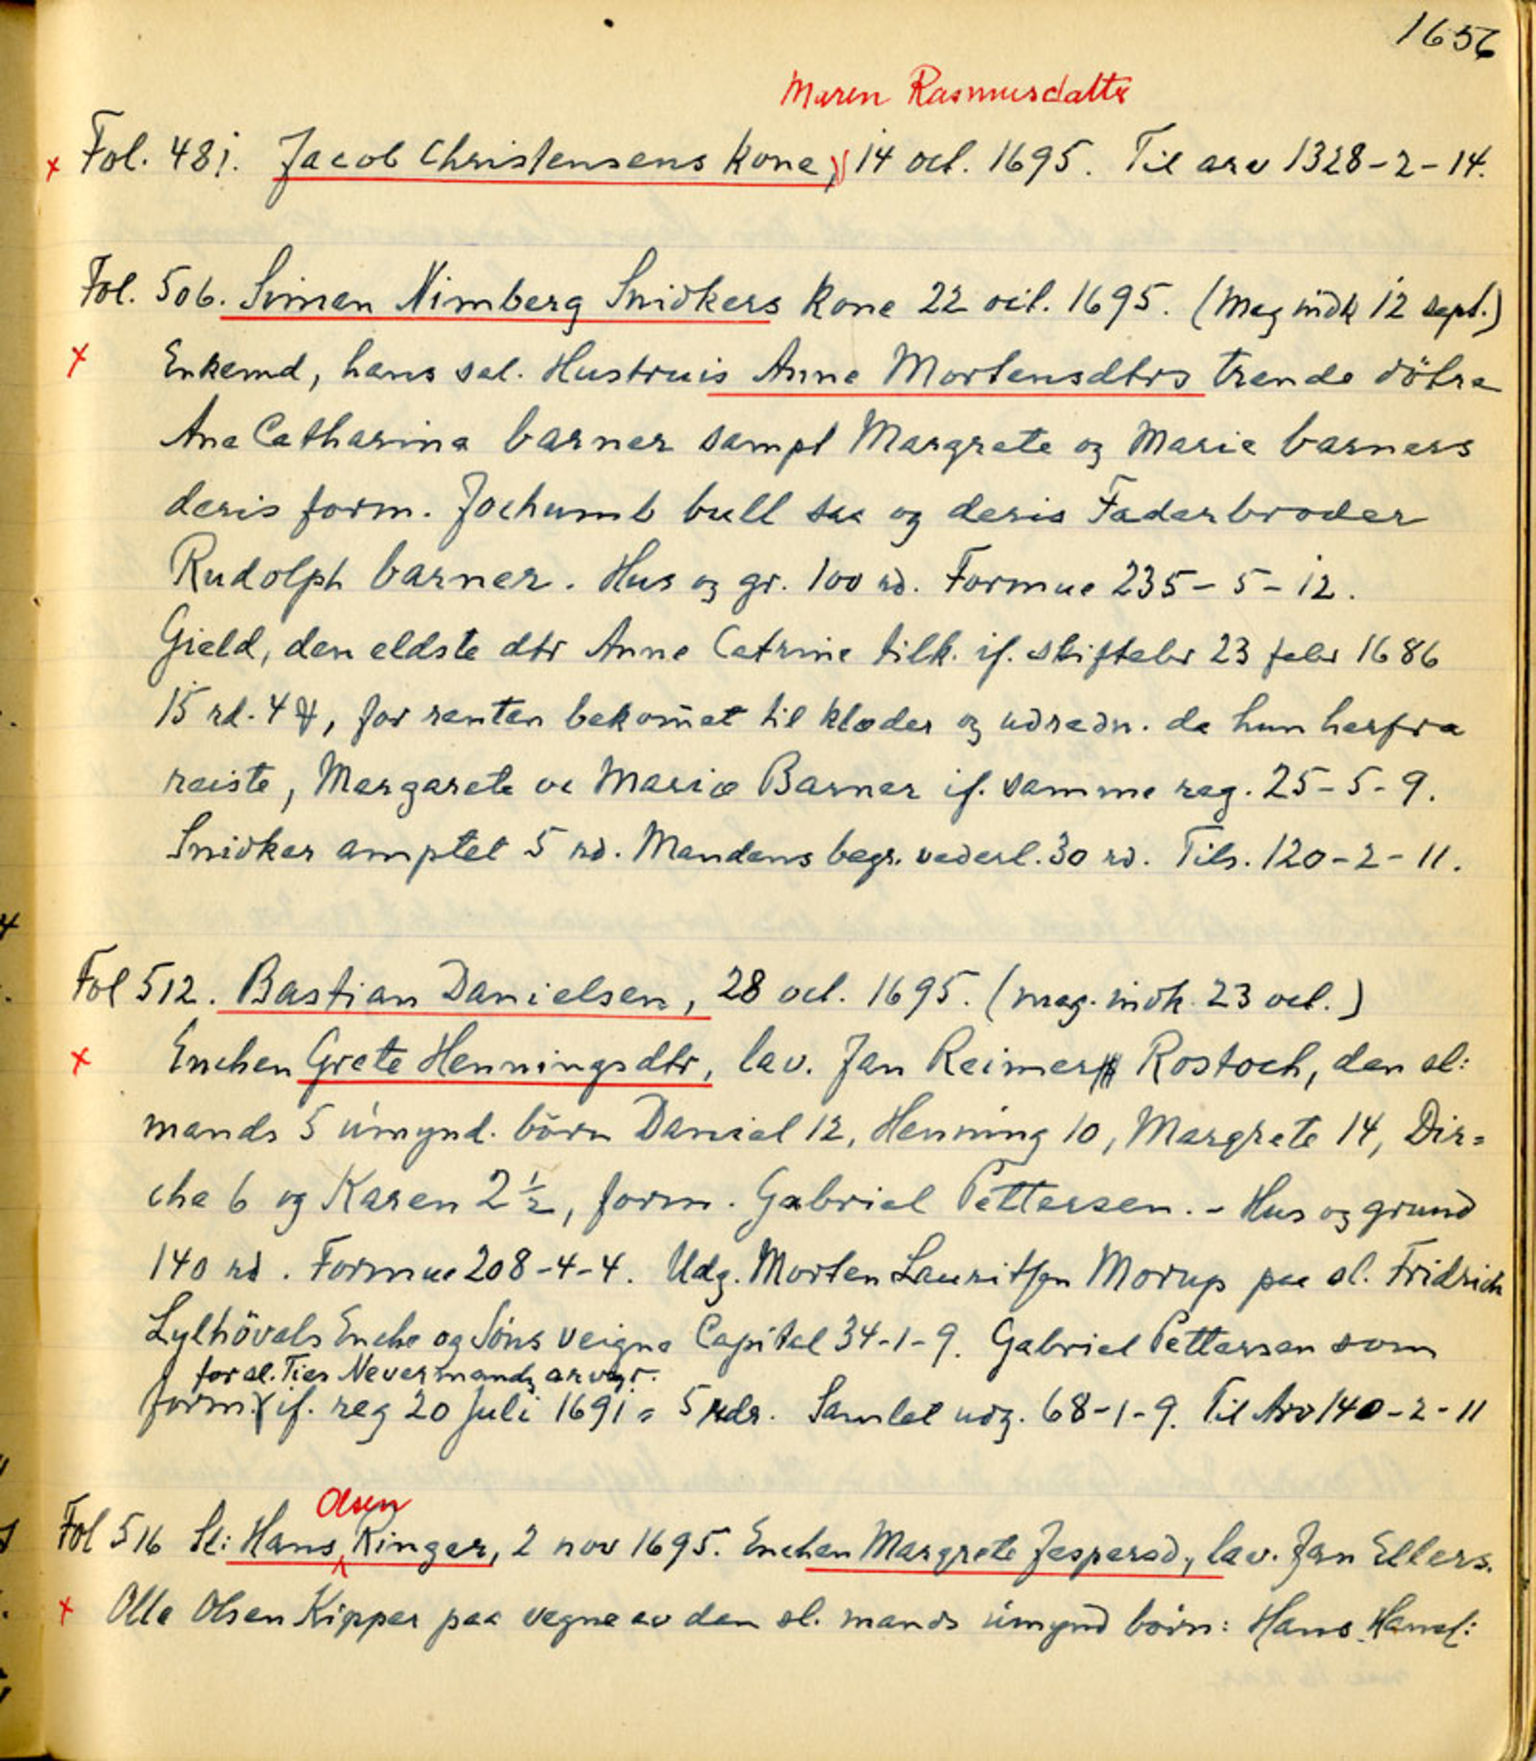 1656
Maren Rasmusdatter
x Fol. 481. Jacob Christensens kone, 14 oct. 1695. Til arv 1328-2-14.
Fol. 506. Simen Nimberg Snidkers kone 22 oct. 1695. (Mag indk 12 sept.)
x Enkemd, hans sal. Hustruis Anne Mortensdtrs trende dötre
Ane Catharina barner sampt Margrete og Marie barners
deris form. Jochumb bull saa og deris Faderbroder
Rudolph barner. Hus og gr. 100 rd. Formue 235-5-12.
Gield, den eldste dtr Anne Catrine tilk. if. skiftebr 23 febr 1686
15 rd. 4 , for renten bekom̄et til klæder og udredn. da hun herfra
reiste, Margarete oc Marie Barner if. samme reg. 25-5-9.
Snidker amptet 5 rd. Mandens begr. vederl. 30 rd. Tils. 120-2-11.
Fol 512. Bastian Danielsen, 28 oct. 1695. (mag. indk. 23 oct.)
x Enchen Grete Henningsdtr, lav. Jan Reimer Rostoch, den sl:
mands 5 umynd. börn Daniel 12, Henning 10, Margrete 14, Dir=
che 6 og Karen 2 1/2, form. Gabriel Pettersen. - Hus og grund
140 rd. Formue 208-4-4. Udg. Morten Lauritsen Morup paa sl. Fridrich
Lylhövels Enche og Söns veigne Capital 34-1-9. Gabriel Pettersen som
for sl. Ties Nevermands arvgr.
form. if. reg 20 Juli 1691 = 5 rdr. Samlet udg. 68-1-9. Til Arv 140-2-11
Olsen
Fol 516 Sl: Hans Kinger, 2 nov 1695. Enchen Margrete Jespersd, lav. Jan Ellers.
x Olle Olsen Kipper paa vegne av den sl. mands umynd börn: Hans Hansl: